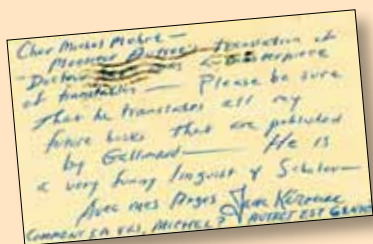 Cher Michel Mohrt —
Monsieur Autret's translation of
Doctor Sax was a masterpiece
of translation — Please be sure
that he translates all my
future books that are published
by Gallimard — He is
a very funny linguist & Scholar —
Avec mes Anges Jack Kerouac
COMMENT ÇA VAS, MICHEL? AUTRET EST GENIUS